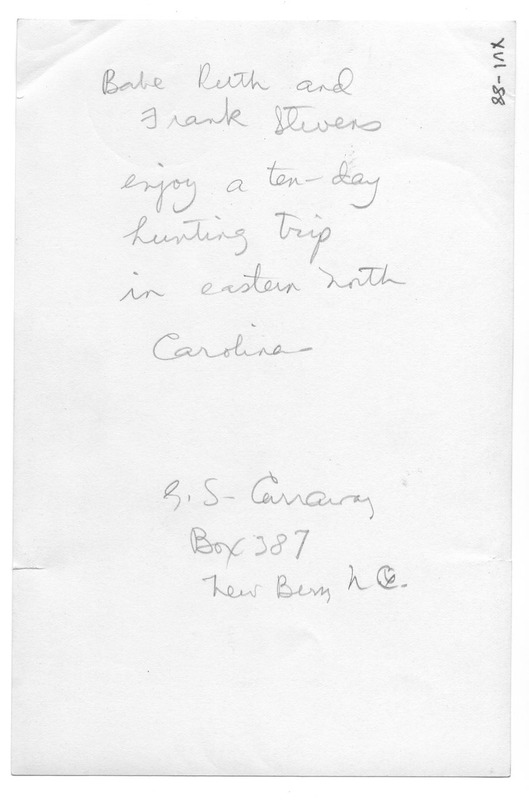 Babe Ruth and
Frank Stevens
enjoy a ten-day
hunting trip
in eastern North
Carolina
G. S. Carraway
Box 387
New Bern N C.
XVI-88